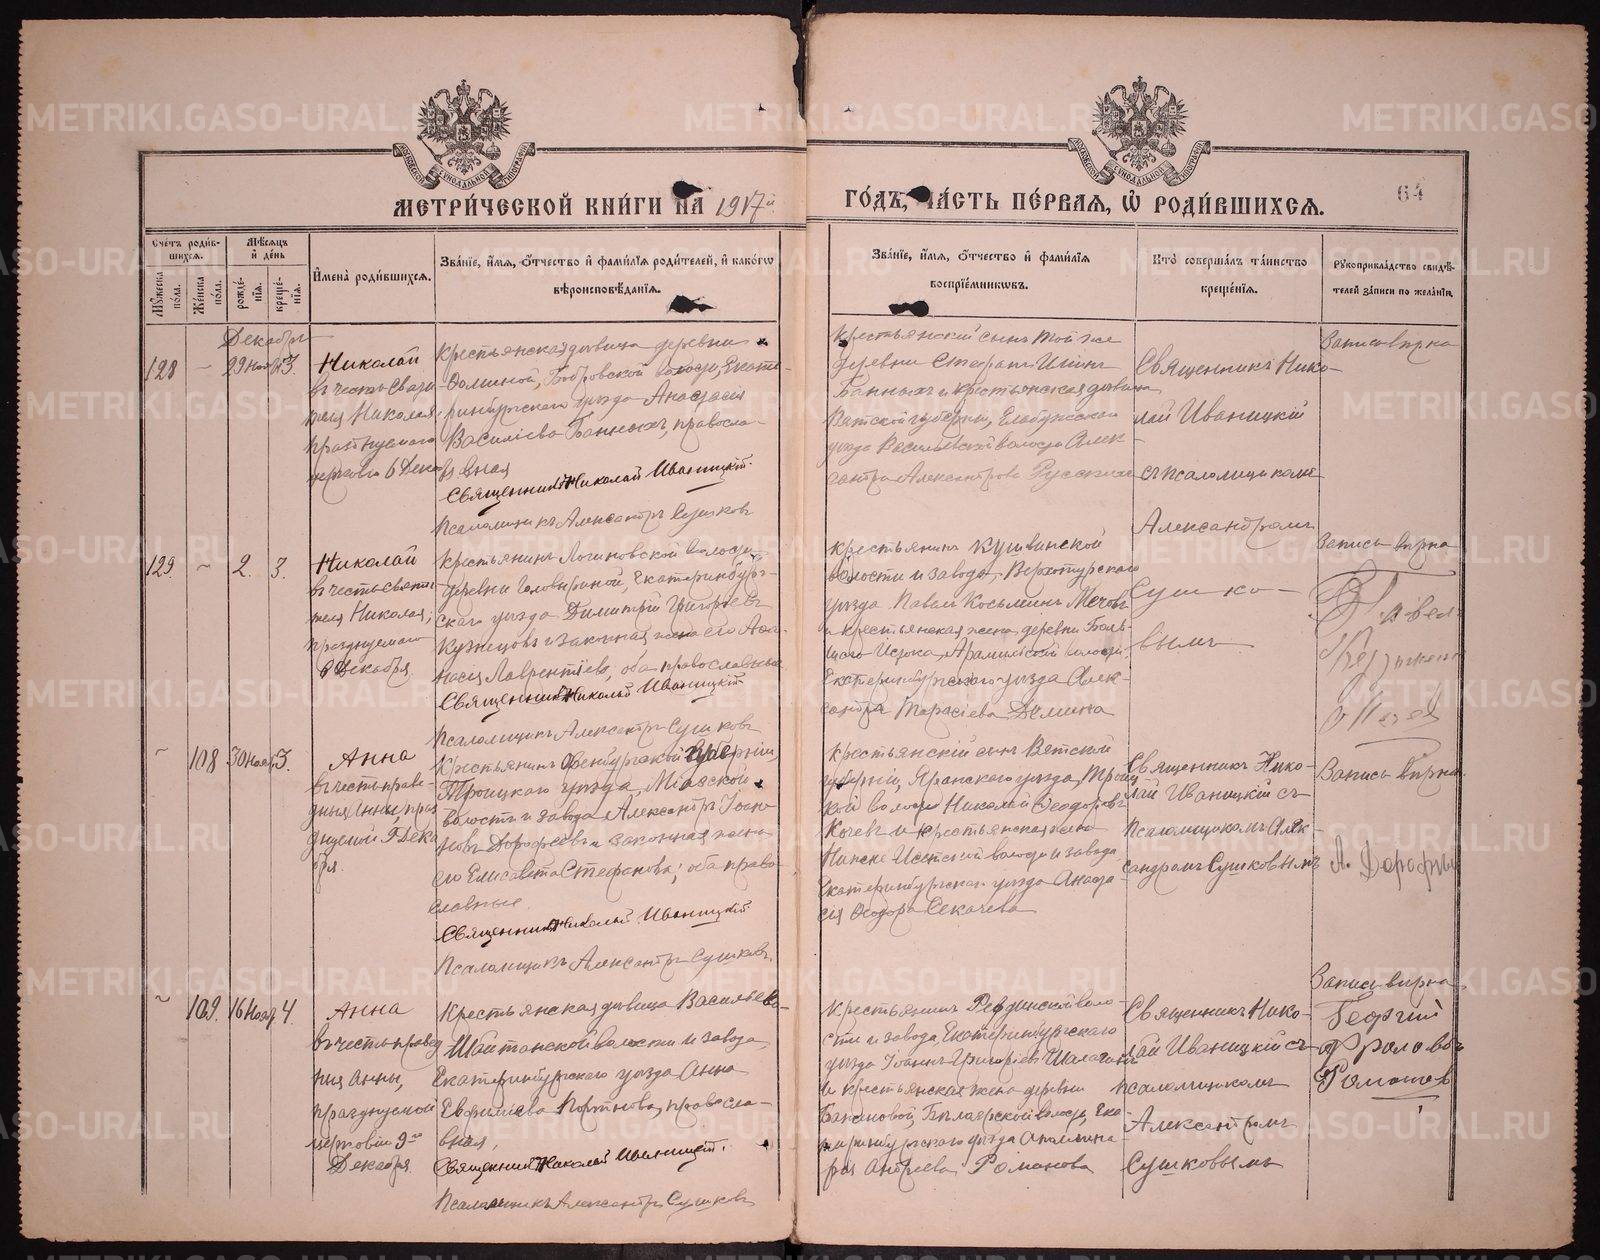 МЕТРИ́ЧЕСКОЙ КНИ́ГИ НА 1917й
ГО́ДЪ, ЧА́СТЬ ПЕ́РВАЯ, Ѡ РОДИ́ВШИХСЯ.
64
Сче́тъ роди́в-
шихся.
Мѣ́сяцъ
и де́нь
Мꙋ́жеска по́ла.
Же́нска по́ла.
рожде́-
нія.
креще́-
нія.
Имена̀ роди́вшихся.
Зва́ніе, и́мя, о́тчество и фами́лія роди́телей, и како́гѡ
вѣроисповѣ́данія.
Зва́ніе, и́мя, о́тчество и фами́лія
воспріе́мникѡвъ.
Кто̀ соверша́лъ та́инство
креще́нія.
Рꙋкоприкла́дство свидѣ́-
телей за́писи по жела́нію.
Декабрь
128 - 29 Ноя 3.
Николай
въ честь Святи
теля Николая
празднуемаго
6 Дека
Крестьянская дѣвица деревни
Фоминой, Бобровской волости, Екате-
ринбургскаго уѣзда Анастасія
Васильева Банныхъ, правосла-
вная
Священникъ Николай Иваницкій.
Псаломщикъ Александръ Сушковъ
Крестьянскій сынъ той же
деревни Стефанъ
Банныхъ и крестьянская дѣвица
Вятской губерніи, Елабужскаго
уѣзда волости Алек-
сандра Александрова Русскихъ
Священникъ Нико-
лай Иваницкій
съ псаломщикомъ
Александромъ
Сушко-
вымъ
Запись вѣрна
129 ~ 2. 3.
Николай
въ честь святи
теля Николая,
празднуемаго
6 Декабря
Крестьянинъ Логиновской волости
деревни Екатеринбург-
скаго уѣзда Димитрій Григорьевъ
Кузнецовъ и законная жена его Ана-
насія Лаврентіева, оба православные
Священникъ Николай Иваницкій
Псаломщикъ Александръ Сушковъ
Крестьянинъ Кушвинской
волости и завода, Верхотурскаго
уѣзда Павелъ Косьминъ Мечевъ
и крестьянская жена деревни Боль-
шого Истока, Арамильской волости,
Екатеринбургскаго уѣзда Алек-
сандра Тарасіева Демина
Запись вѣрна
Павелъ
Мечев
~ 108 30 Ноя 3.
Анна
въ честь праве
дныя Анны, праз
днуемой 9 Дека
бря.
Крестьянинъ Оренбургской Губерніи,
Троицкаго уѣзда, Міасской
волости и завода Александръ Іоан-
новъ Дорофеевъ и законная жена
его Елисавета Стефанова; оба право-
славные
Священникъ Николай Иваницкій
Псаломщикъ Александръ Сушковъ.
Крестьянскій сынъ Вятской
губерніи, Яранскаго уѣзда, Троиц
кой волости Николай Ѳеодоровъ
Кочевъ и крестьянская жена
Нижне Исетской волости и завода
Екатеринбургскаго уѣзда Анаста-
сія Ѳеодора Секачева
Священникъ Нико-
лай Иваницкій съ
псаломщикомъ Алек-
сандромъ Сушковымъ
Запись вѣрна
А. Дорофеев
~ 109. 16 Нояб 4.
Анна
въ честь правед
ныя Анны,
празднуемой
церковью 9го
Декабря
Крестьянская дѣвица Васильево-
Шайтанской волости и завода
Екатеринбургскаго уѣзда Анна
Евфиміева Портнова, правосла-
вная,
Священникъ Николай Иваницкій.
Псаломщикъ Александръ Сушковъ
Крестьянинъ Ревдинской воло-
сти и завода, Екатеринбургскаго
уѣзда Іоаннъ Григорьевъ
и крестьянская жена деревни
Баженовой, Бѣлоярской волости, Ека-
теринбургскаго уѣзда Аполлина-
рія Андреева Романова
Священникъ Нико-
лай Иваницкій съ
псаломщикомъ
Александромъ
Сушковымъ
Запись вѣрна
Георгий
Фролов
Романов
METRIKI.GASO-URAL.RU